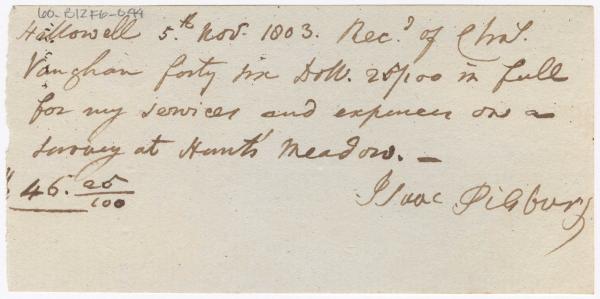 60-B12F6-044
Hallowell 5.th Nov. 1803. Rec.d of Chas.
Vaughan forty six Doll. 25/100 in full
for my services and expences on a
survey at Hunts Meadow. —
46. 25/100
Isaac Pilsbury